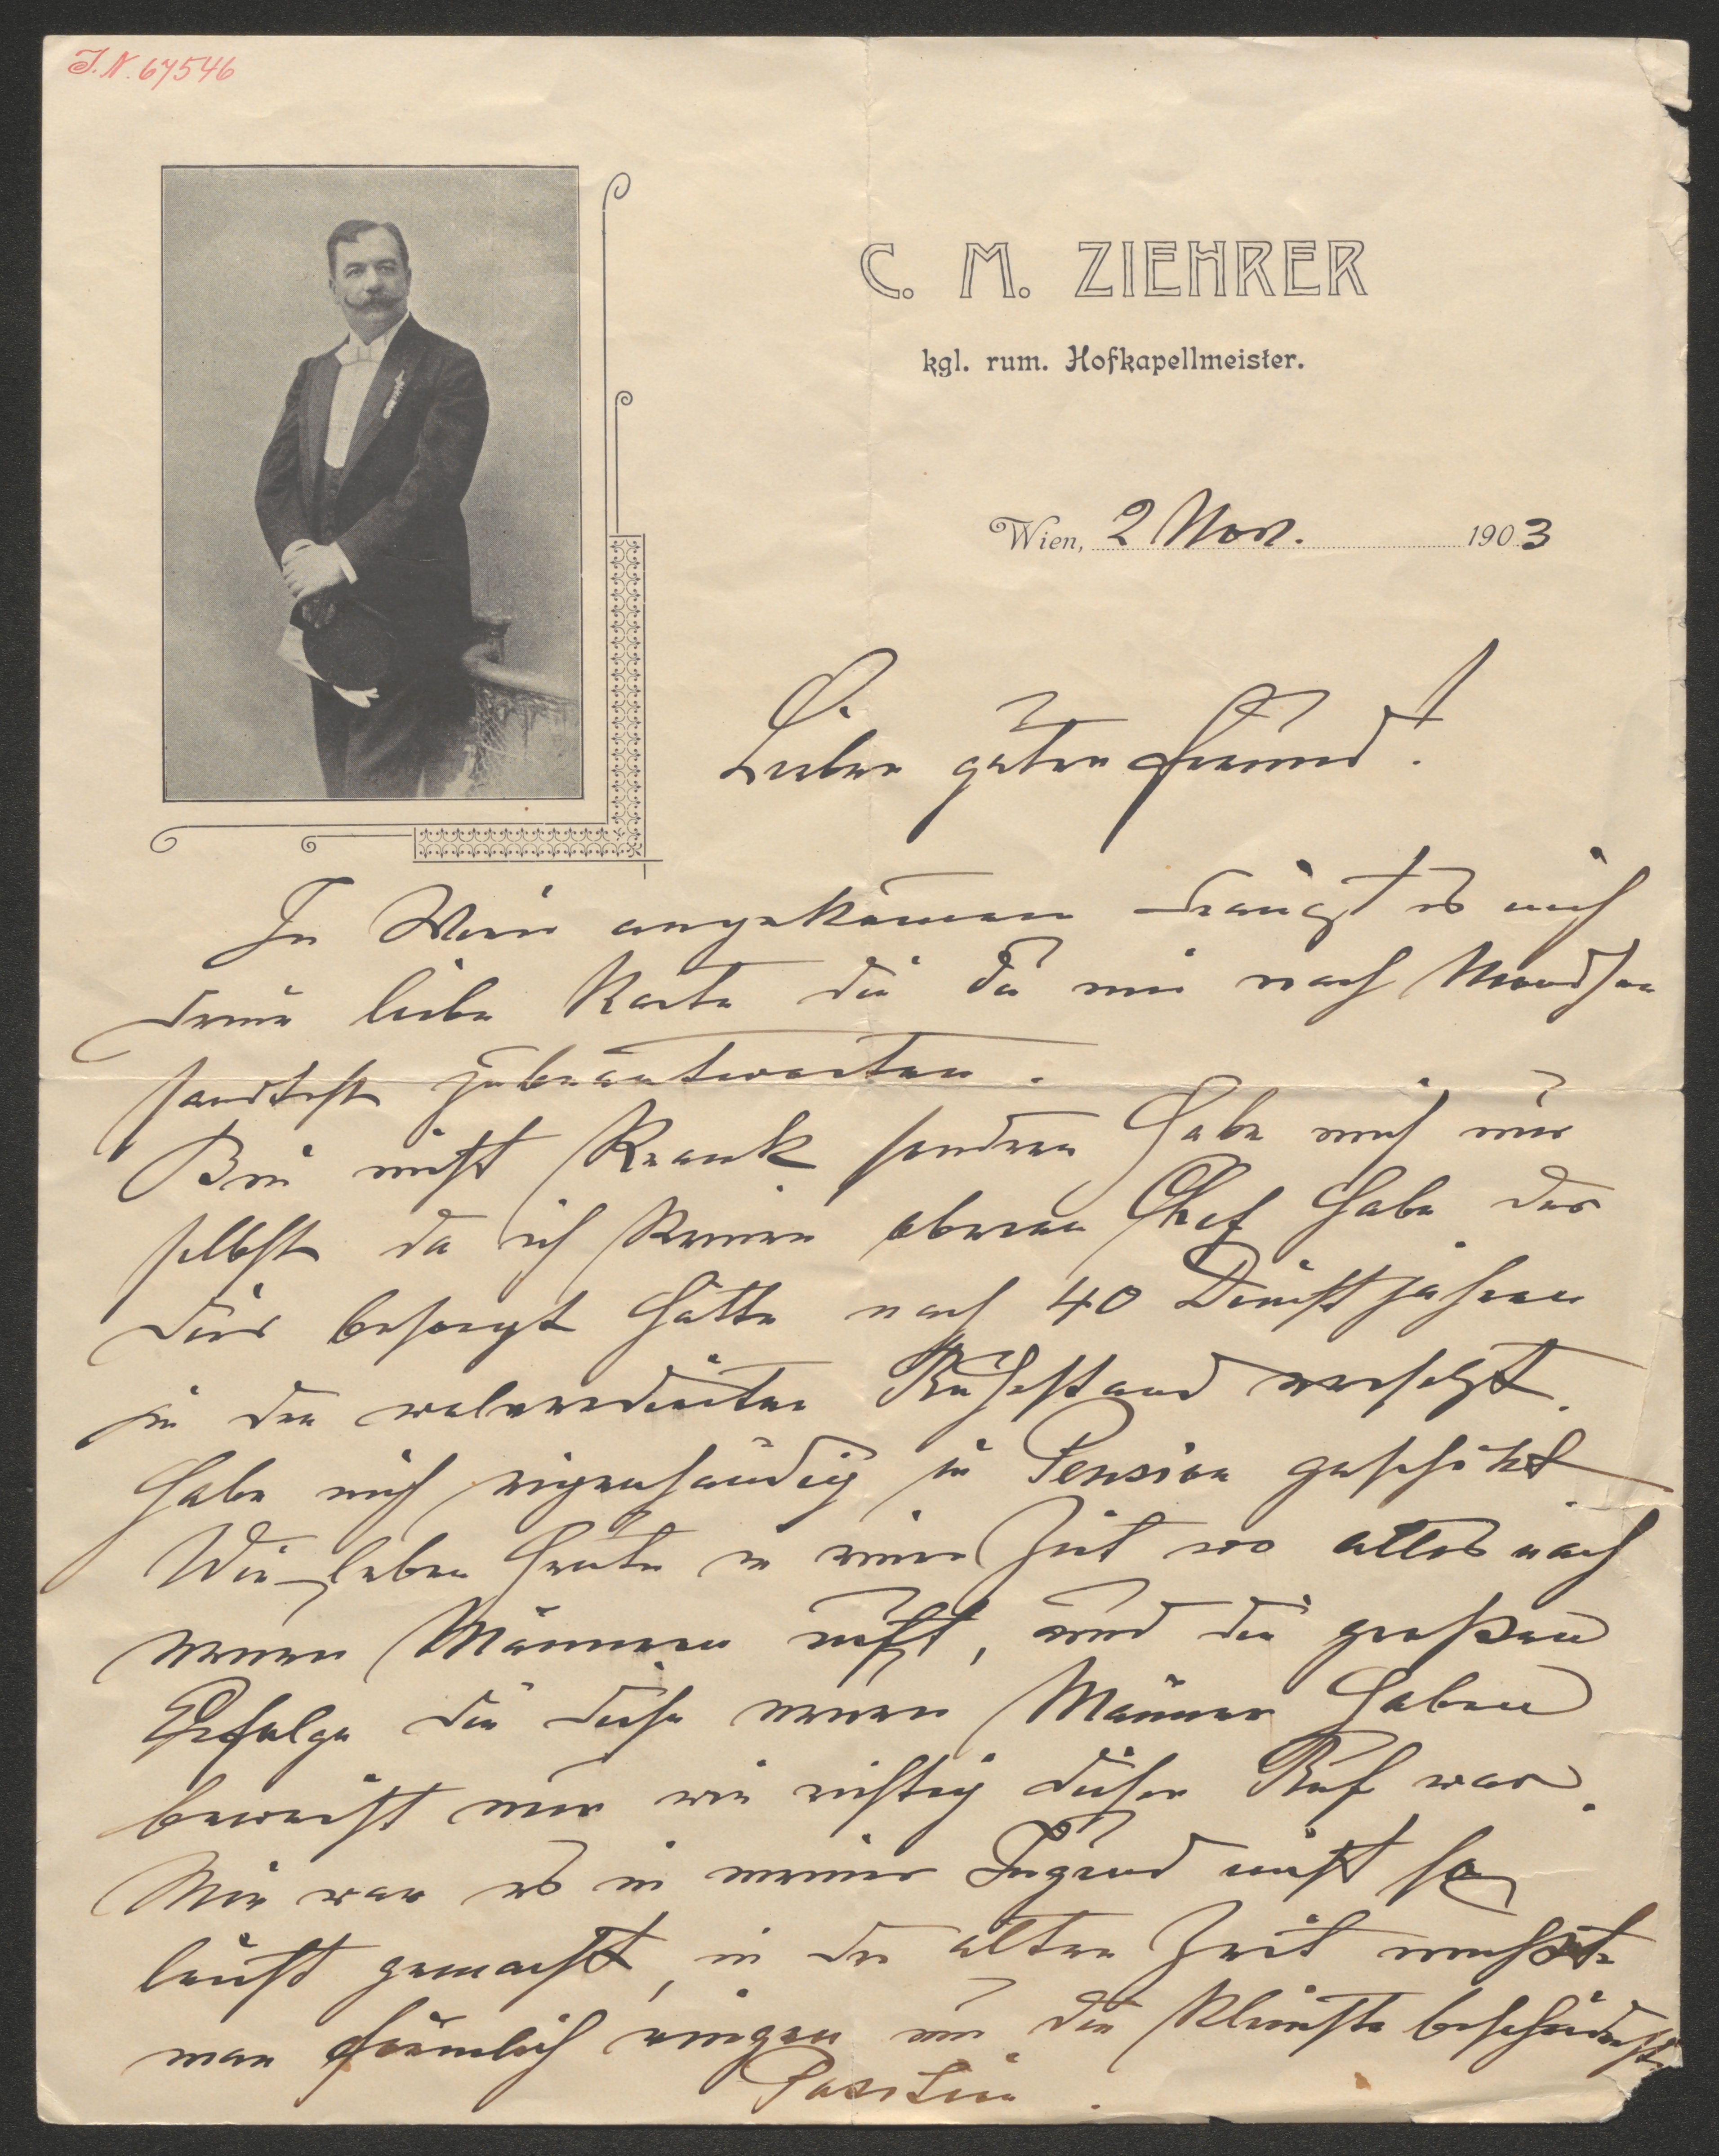 J.N. 67546
C. M. ZIEHRER
kgl. rum. Hofkapellmeister.
Wien, 2 Nov. 1903
Lieber guter Freund!
In Wien angekommen drängt es mich
deine liebe Karte die Du mir nach Mondsee
sandtest zubeantworten.
Bin nicht Krank sondern habe mich nur
selbst da ich keinen oberen Chef habe der
dies besorgt hätte nach 40 Dienstjahren
in den wolverdienten Ruhestand versetzt.
Habe mich eigenhändig in Pension geschikt
Wir leben heute in einer Zeit wo alles nach
neuen Männern ruft, und die großen
Erfolge die diese neuen Männer haben
beweist nur wie richtig dieser Ruf war.
Mir war es in meiner Jugend nicht so
leicht gemacht, in der alten Zeit mußte
man förmlich ringen um die kleinste bescheidenste
Position.